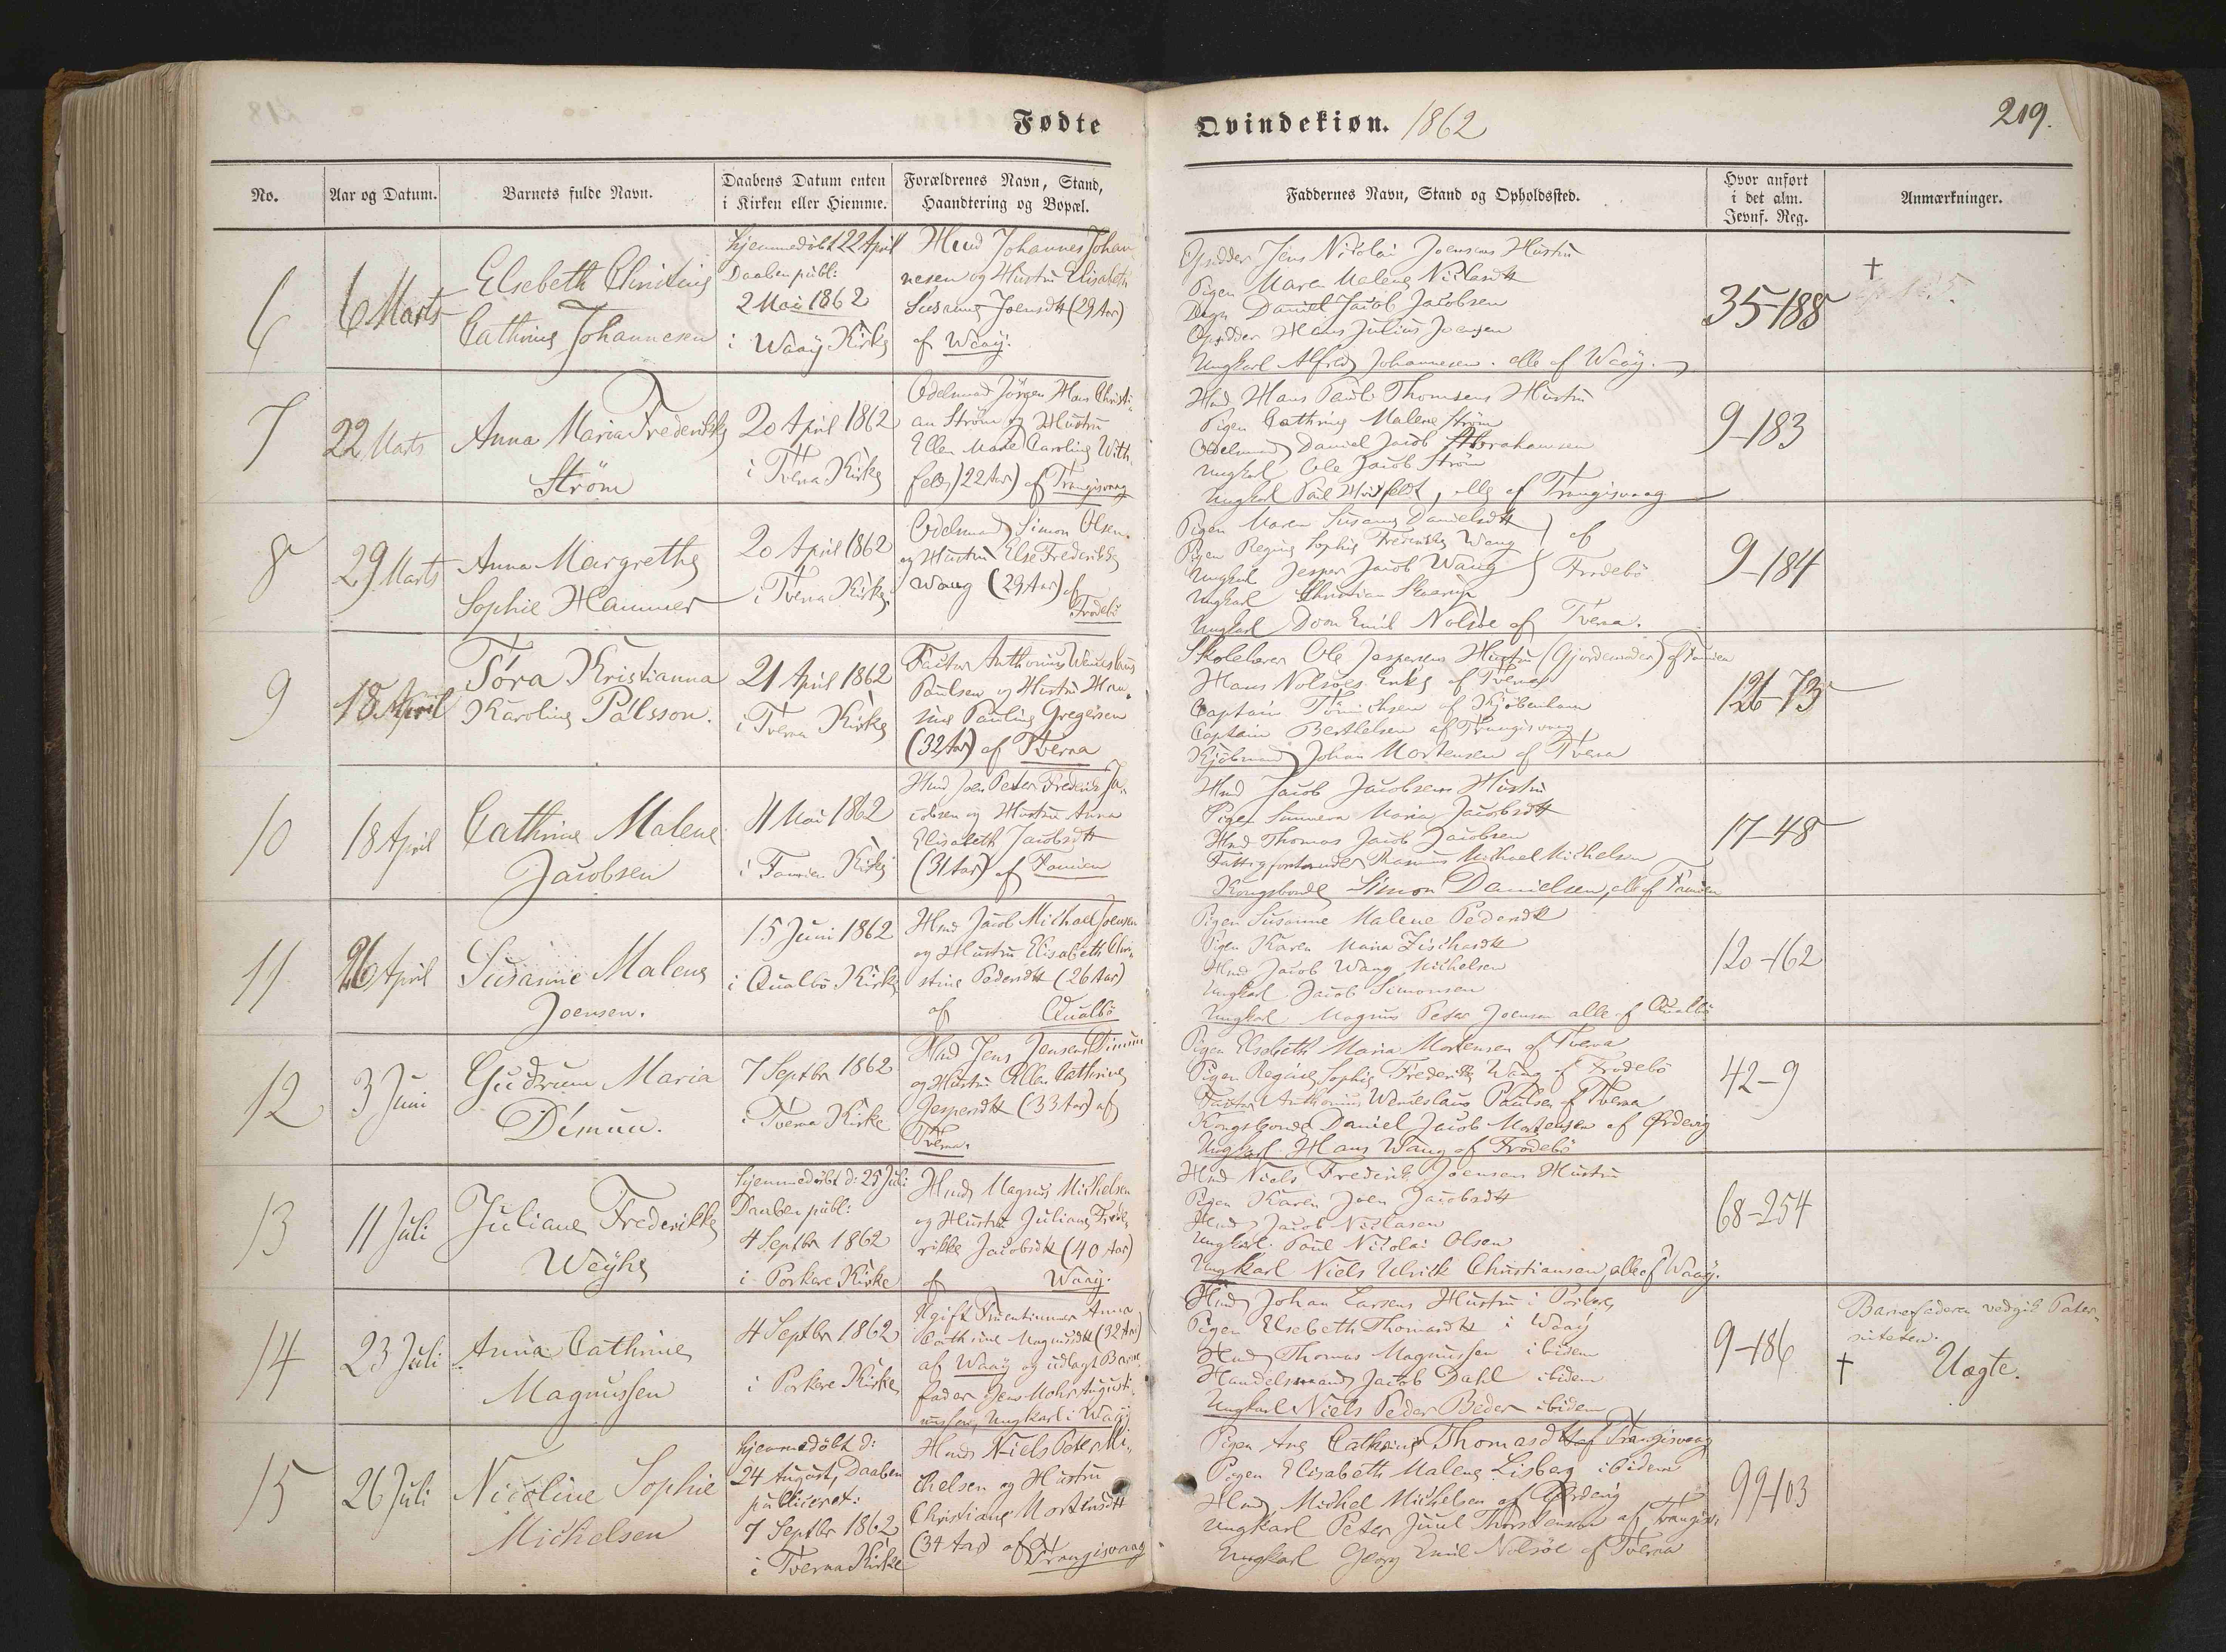 Fødte
Qvindekiøn. 1862
219.
No.
Aar og Datum.
Barnets fulde Navn.
Daabens Datum enten
i Kirken eller Hiemme.
Forældrenes Navn, Stand,
Haandtering og Bopæl.
Faddernes Navn, Stand og Opholdssted.
Hvor anført
i det alm.
Jevnf. Reg.
Anmærkninger.
6
6 Marts
Elsebeth Christine
Cathrine Johannesen
hjemmedöbt 22 April
Daaben publ:
2 Mai 1862
i Waaÿ Kirke
Hmd Johannes Johan-
nesen og Hustru Elisabeth
Susanne Joensdtt (29 Aar)
af Waaÿ.
Opsidder Jens Nicolai Joensens Hustru
Pigen Maren Malene Niclasdtt
Degn Daniel Jacob Jacobsen
Opsidder Hans Julius Joensen
Ungkarl Alfred Johannesen. alle af Waaÿ.
35-188
†
7
22 Marts
Anna Maria Frederikke
Ström
20 April 1862
i Tvera Kirke
Odelsmand Jörgen Hans Christi-
an Ström og Hustru
Ellen Marie Caroline With-
feldt (22 Aar) af Trangisvaag
Hmd Hans Paul Thomsens Hustru
Pigen Cathrine Malene Ström
Odelsmand Daniel Jacob Abrahamsen
Ungkarl Ole Jacob Ström
Ungkarl Poul Hvitfeldt, alle af Trangisvaag
9-183
8
29 Marts
Anna Margrethe
Sophie Hammer
20 April 1862
i Tvera Kirke
Odelsmand Simon Olsen
og Hustru Else Frederikke
Wang (29 Aar) af
Frodebö
Pigen Maren Susanne Danielsdtt
Pigen Regine Sophie Frederikke Wang
Ungkarl Jesper Jacob Wang
Ungkarl Christian Skaarup
af
Frodebö
Ungkarl Emil Nolsöe af Tvera.
9-184
9
18 April
Tóra Kristianna
Karoline Pálsson.
21 April 1862
i Tvera Kirke
Factor Anthonius Wenceslaus
Paulsen og Hustru Han-
sine Pauline Gregersen
(32 Aar) af Tvera
Skolelærer Ole Jespersens Hustru (Gjordemoder) af Famien
Hans Nolsöes Enke af Tvera
Captain af Kjöbenhavn
Captain Berthelsen af Trangisvaag
Kjöbmand Johan Mortensen af Tvera
126-73
10
18 April
Cathrine Malene
Jacobsen
4 Mai 1862
i Famien Kirke
Hmd Joen Peter Frederik Ja-
cobsen og Hustru Anna
Elisabeth Jacobsdtt
(31 Aar) af Famien
Hmd Jacob Jacobsens Hustru
Pigen Sunneva Maria Jacobsdtt
Hmd Thomas Jacob Jacobsen
Fattigforstander Rasmus Michael Michelsen
Kongsbonde Simon Danielsen, alle af Famien
17-48
11
26 April
Susanne Malene
Joensen.
15 Juni 1862
i Qualbö Kirke
Hmd Jacob Michael Joensen
og Hustru Elisabeth Chri-
stine Pedersdtt (26 Aar)
af Qualbö
Pigen Susanne Malene Pedersdtt
Pigen Karen Maria
Hmd Jacob Wang Michelsen
Ungkarl Jacob Simonsen
Ungkarl Magnus Peter Joensen alle af Qualbö
120-162
12
3 Juni
Gudrun Maria
Dímun.
7 Septbr 1862
i Tvera Kirke
Hmd Jens Jensen Dimun
og Hustru Ellen Cathrine
Jespersdtt (33 Aar) af
Tvera.
Pigen Elsebeth Maria Mortensen af Tvera
Pigen Regine Sophie Frederikke Wang af Frodebö
Factor Anthonius Wenceslaus Paulsen af Tvera
Kongsbonde Daniel Jacob Mortensen af Ördevig
Ungkarl Hans Wang af Frodebö
42-9
13
11 Juli
Juliane Frederikke
Weÿhe
hjemmedöbt d: 25 Juli
Daaben publ:
4 Septbr 1862
i Porkere Kirke
Hmd Magnus Michelsen
og Hustru Juliane Frede-
rikke Jacobsdtt (40 Aar)
af Waaÿ.
Hmd Niels Frederik Joensens Hustru
Pigen Karen Joen Jacobsdtt
Hmd Jacob Niclasen
Ungkarl Poul Nicolai Olsen
Ungkarl Niels Ulrich Christiansen, alle af Waaÿ.
68-254
14
23 Juli
Anna Cathrine
Magnussen
4 Septbr 1862
i Porkere Kirke
Ugift Fruentimmer Anna
Cathrine Magnusdtt (32 Aar)
af Waaÿ og udlagt Barne-
fader Jens Mohr Augusti-
nussen, Ungkarl i Waaÿ
Hmd Johan Larsens Hustru i Porkere
Pigen Elsebeth Thomasdtt i Waaÿ
Hmd Thomas Magnussen ibidem
Handelsmand Jacob Dahl ibidem
Ungkarl Niels Peder Beder ibidem
9-186
Barnefaderen vedgik Pater-
niteten.
† Uægte.
15
26 Juli
Nicoline Sophie
Michelsen
hjemmedöbt d:
24 August, Daaben
publiceret:
7 Septbr 1862
i Tveraa Kirke
Hmd Niels Peter Mi-
chelsen og Hustru
Christiane Mortensdtt
(34 Aar) af Trangisvaag
Pigen Ane Cathrine Thomasdtt af Trangisvaag
Pigen Elisabeth Malene Lisberg ibidem
Hmd Michel Michelsen af Ördevig
Ungkarl Peter Juul Thorsteinson af Trangisv:
Ungkarl Georg Emil Nolsöe af Tveraa
99-103